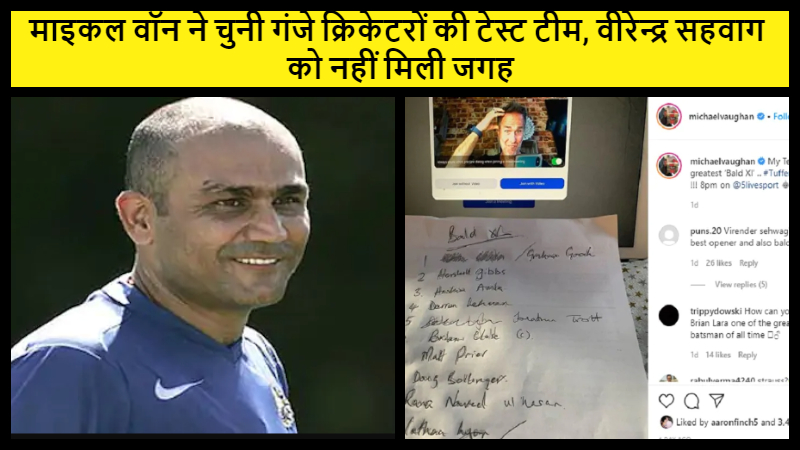 माइकल वॉन ने चुनी गंजे क्रिकेटरों की टेस्ट टीम, वीरेन्द्र सहवाग
को नहीं मिली जगह
michaelvaughan • Follo
michaelvaughan My Te
greatest 'Bald XI' .. #Tuffe
!!! 8pm on @5livesport
1d
puns.20 Virender sehwag
best opener and also bald
1d 26 likes Reply
View replies (5)
trippydowski How can yo
Brian Lara one of the grea
batsman of all time
1d 14 likes Reply
Liked by aaronfinch5 and 3,4
Join with Video
Bald XI
1 / Graham Gooch
2 Herschell Gibbs
3. Hashim Amla
4 Darren Lehmann
5 Jonathan Trott
(c)
Matt Prior
Doug Bollinger.
Rana Naved ul hasan.
Nathan Lyon